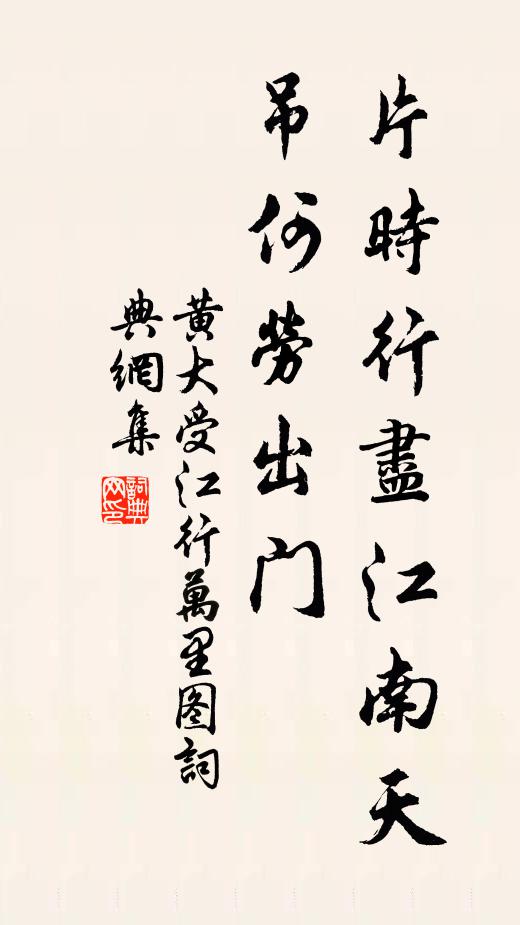 片時行盡江南天
吊何勞出门
黄大受江行萬里图詞
典網集
詞典
网印